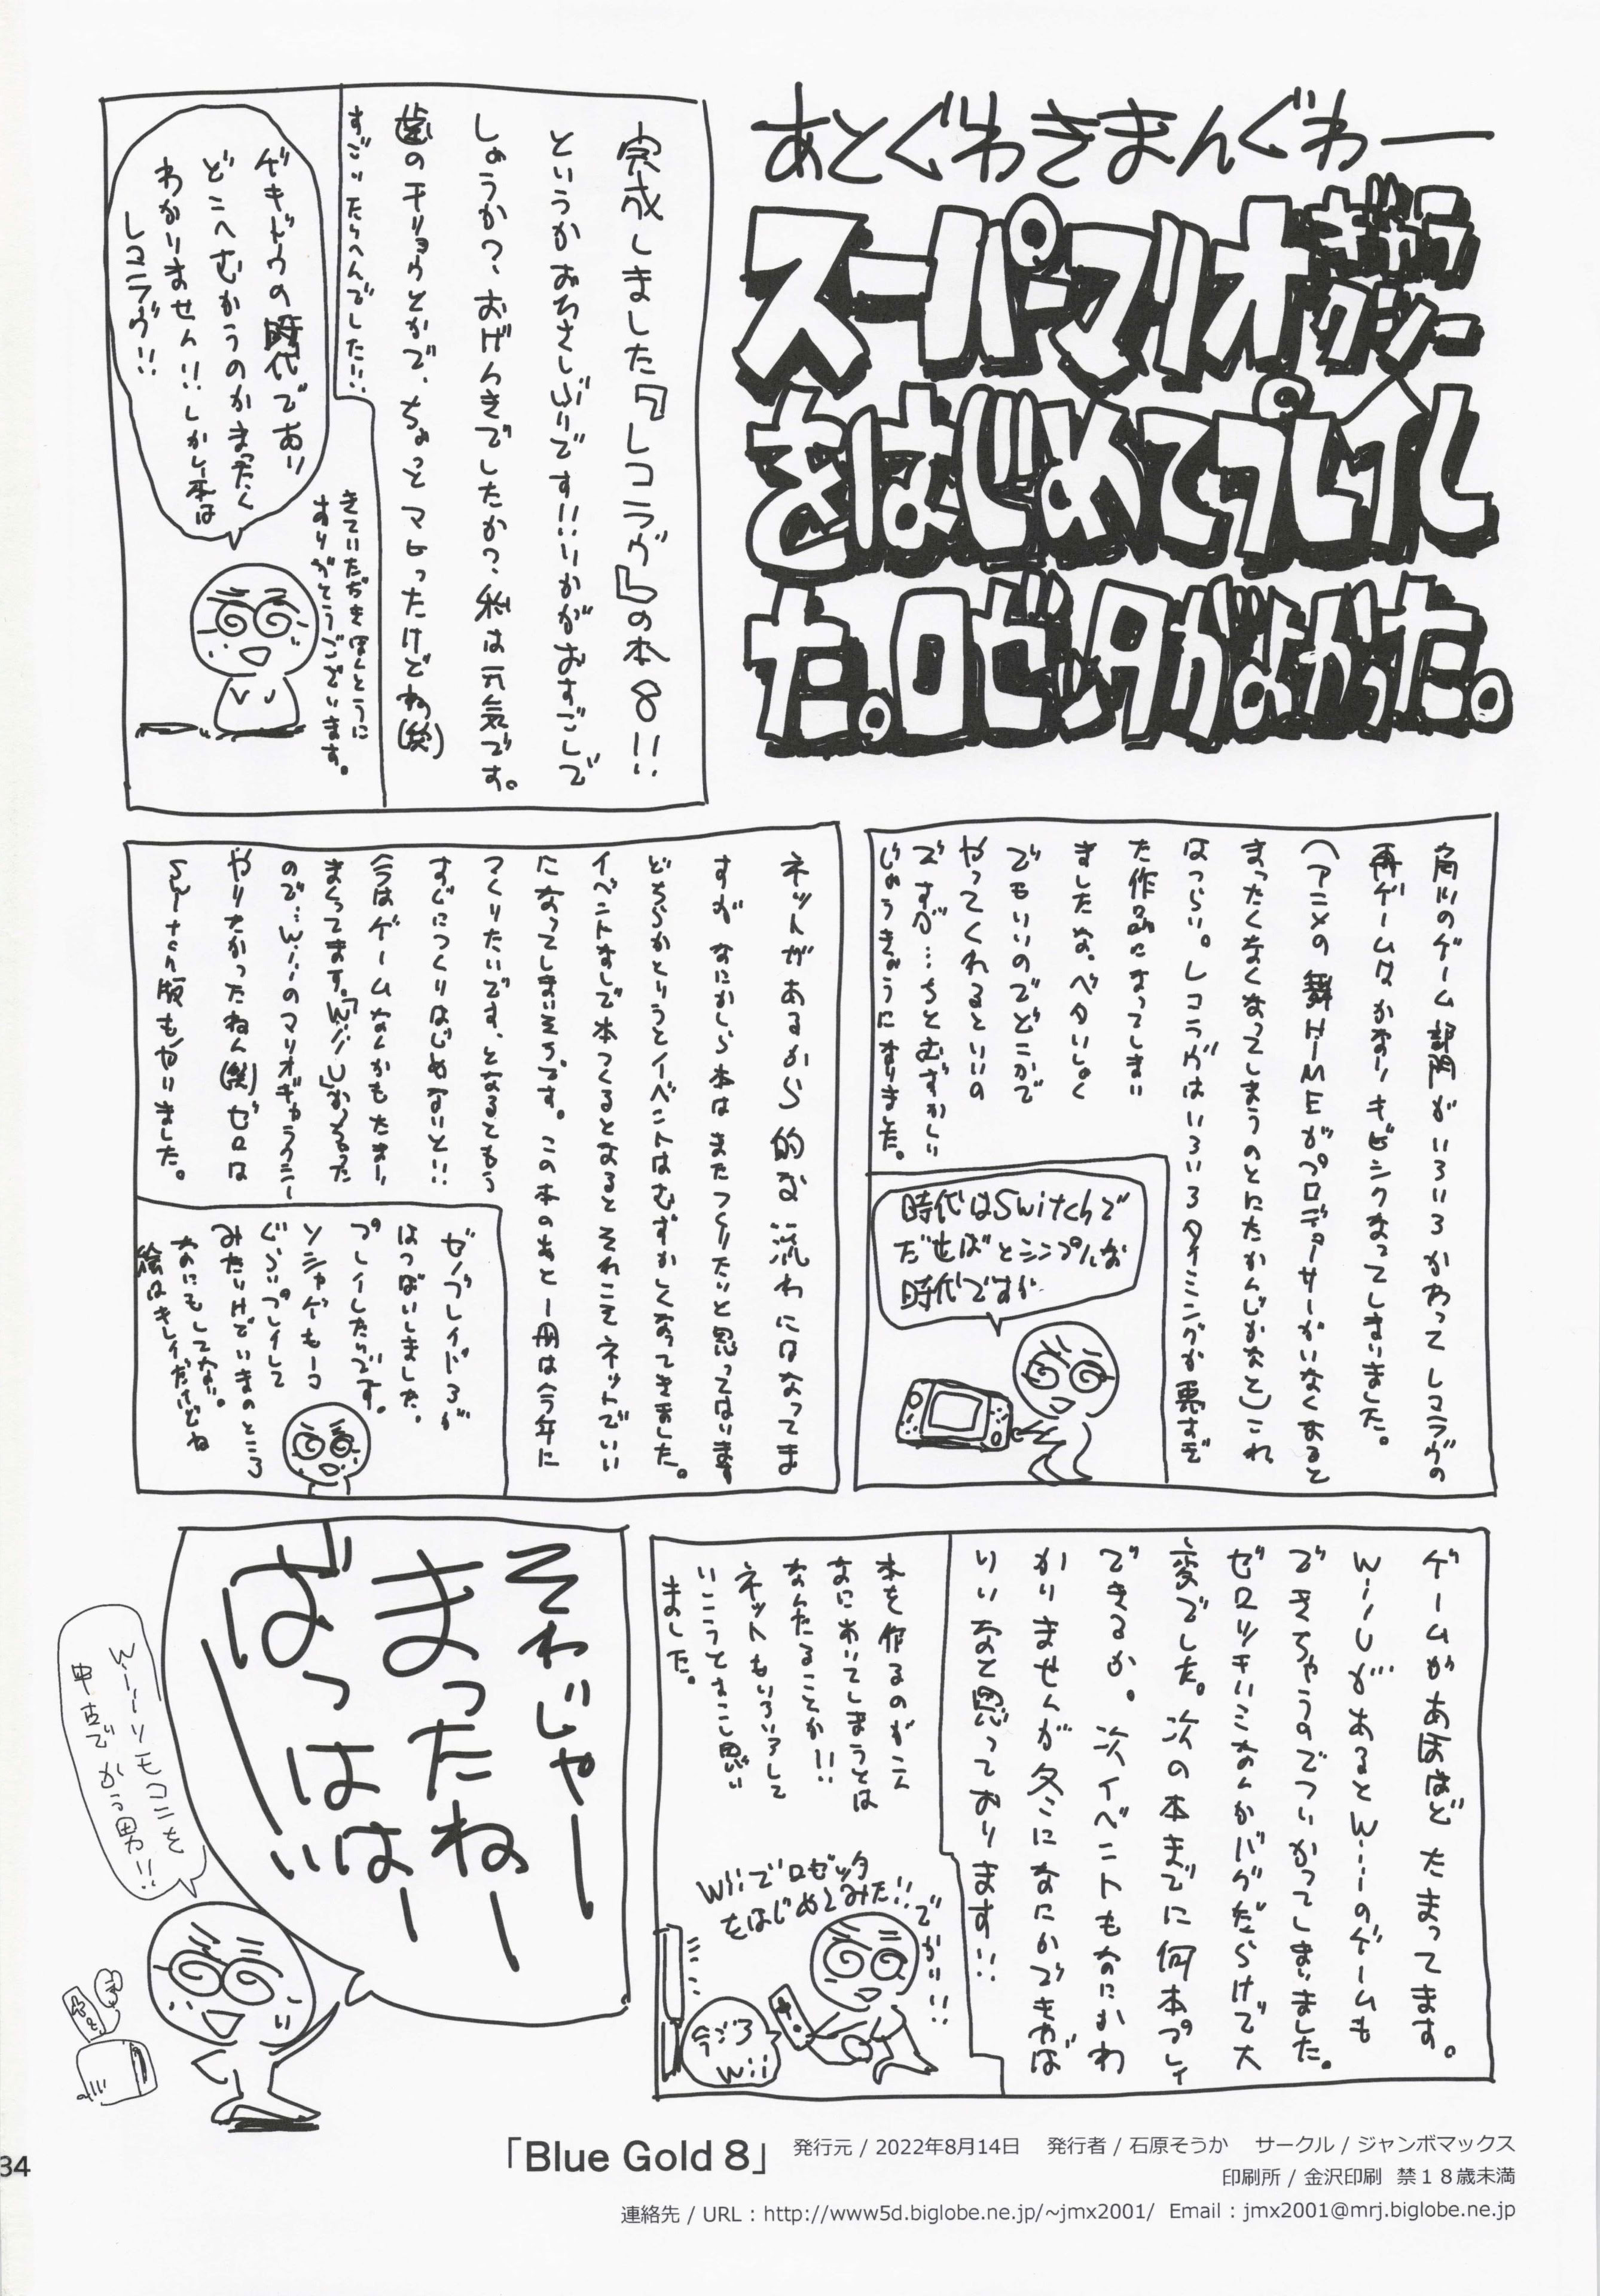 あとぐわきまんぐわー
スーパーマリオギャラクシー
をはじめてプレイし
た。ロゼッタがよかった。
完成しました『レコラヴ』の本8!!
というかおひさしぶりです!!いかがおすごしで
しょうか?、おげんきでしたか?、私は元気です。
歯のチリョウとかで、ちょっとマヒったけどね(笑)
すごいたいへんでした!!:
きていただきほんとうに
ありがとうございます。
ゲキドウの時代であり
どこへむかうのかまったく
わかりません!!しかし本は
レコラヴ!!
角川のゲーム部門がいろいろかわってレコラヴの
再ゲームはかなりキビシクなってしまいました。
(アニメの舞HiMEがプロデューサーがいなくなると
まったくなくなってしまうのとにたかんじかなと)これ
はつらい。レコラヴはいろいろタイミングが悪すぎ
た作品になってしまい
ましたな。ベタいしょく
でもいいのでどこかで
やってくれるといいの
ですが…ちとむずかしい
じょうきょうになりました。
時代はSwitchで
だせばとシンプルな
時代ですが
ネットがあるから的な流れにはなってま
すがなにかしら本はまたつくりたいと思ってはいます
どちらかというとイベントはむずかしくなってきました。
イベントなしで本つくるとなるとそれこそネットでいい
になってしまいそうです。この本のあと一冊は今年に
つくりたいです、となるともう
すぐにつくりはじめないと!!
今はゲームなんかもたまり
まくってます。「WiiU」かえるった
ので…Wiiのマリオギャラクシー
やりたかったねん(笑)ゼロは
Switch版も買いました。
ゼノブレイド3が
はつばいしました。
プレイしたいです。
ソシャゲも一コ
ぐらいプレイして
みたいけどいまのところ
なにもしてない。
絵はキレイだけどね
ゲームがあほほどたまってます。
WiiUがあるとWiiのゲームも
できちゃうのでついかってしまいました。
ゼロリッチいこなんかバグだらけで大
変でした。次の本までに何本プレイ
できるか。次イベントもなにかわ
かりませんが冬になにかできれば
いいなと思っております!!
本を作るのが二人
なにあいてしまうとは
なんたることか!!
ネットもいろいろして
いこうとおこし思い
ました。
Wiiでロゼッタ
をはじめてみた!!でかい!!
今ごろ
Wii
それじゃー
まったねー
ばっはは
ーいー
Wiiリモコンを
中古でかう男!!
「Blue Gold 8」 発行元 / 2022年8月14日 発行者 / 石原そうか サークル / ジャンボマックス
印刷所 / 金沢印刷 禁18歳未満
連絡先 / URL : http://www5d.biglobe.ne.jp/~jmx2001/ Email : jmx2001@mrj.biglobe.ne.jp
34